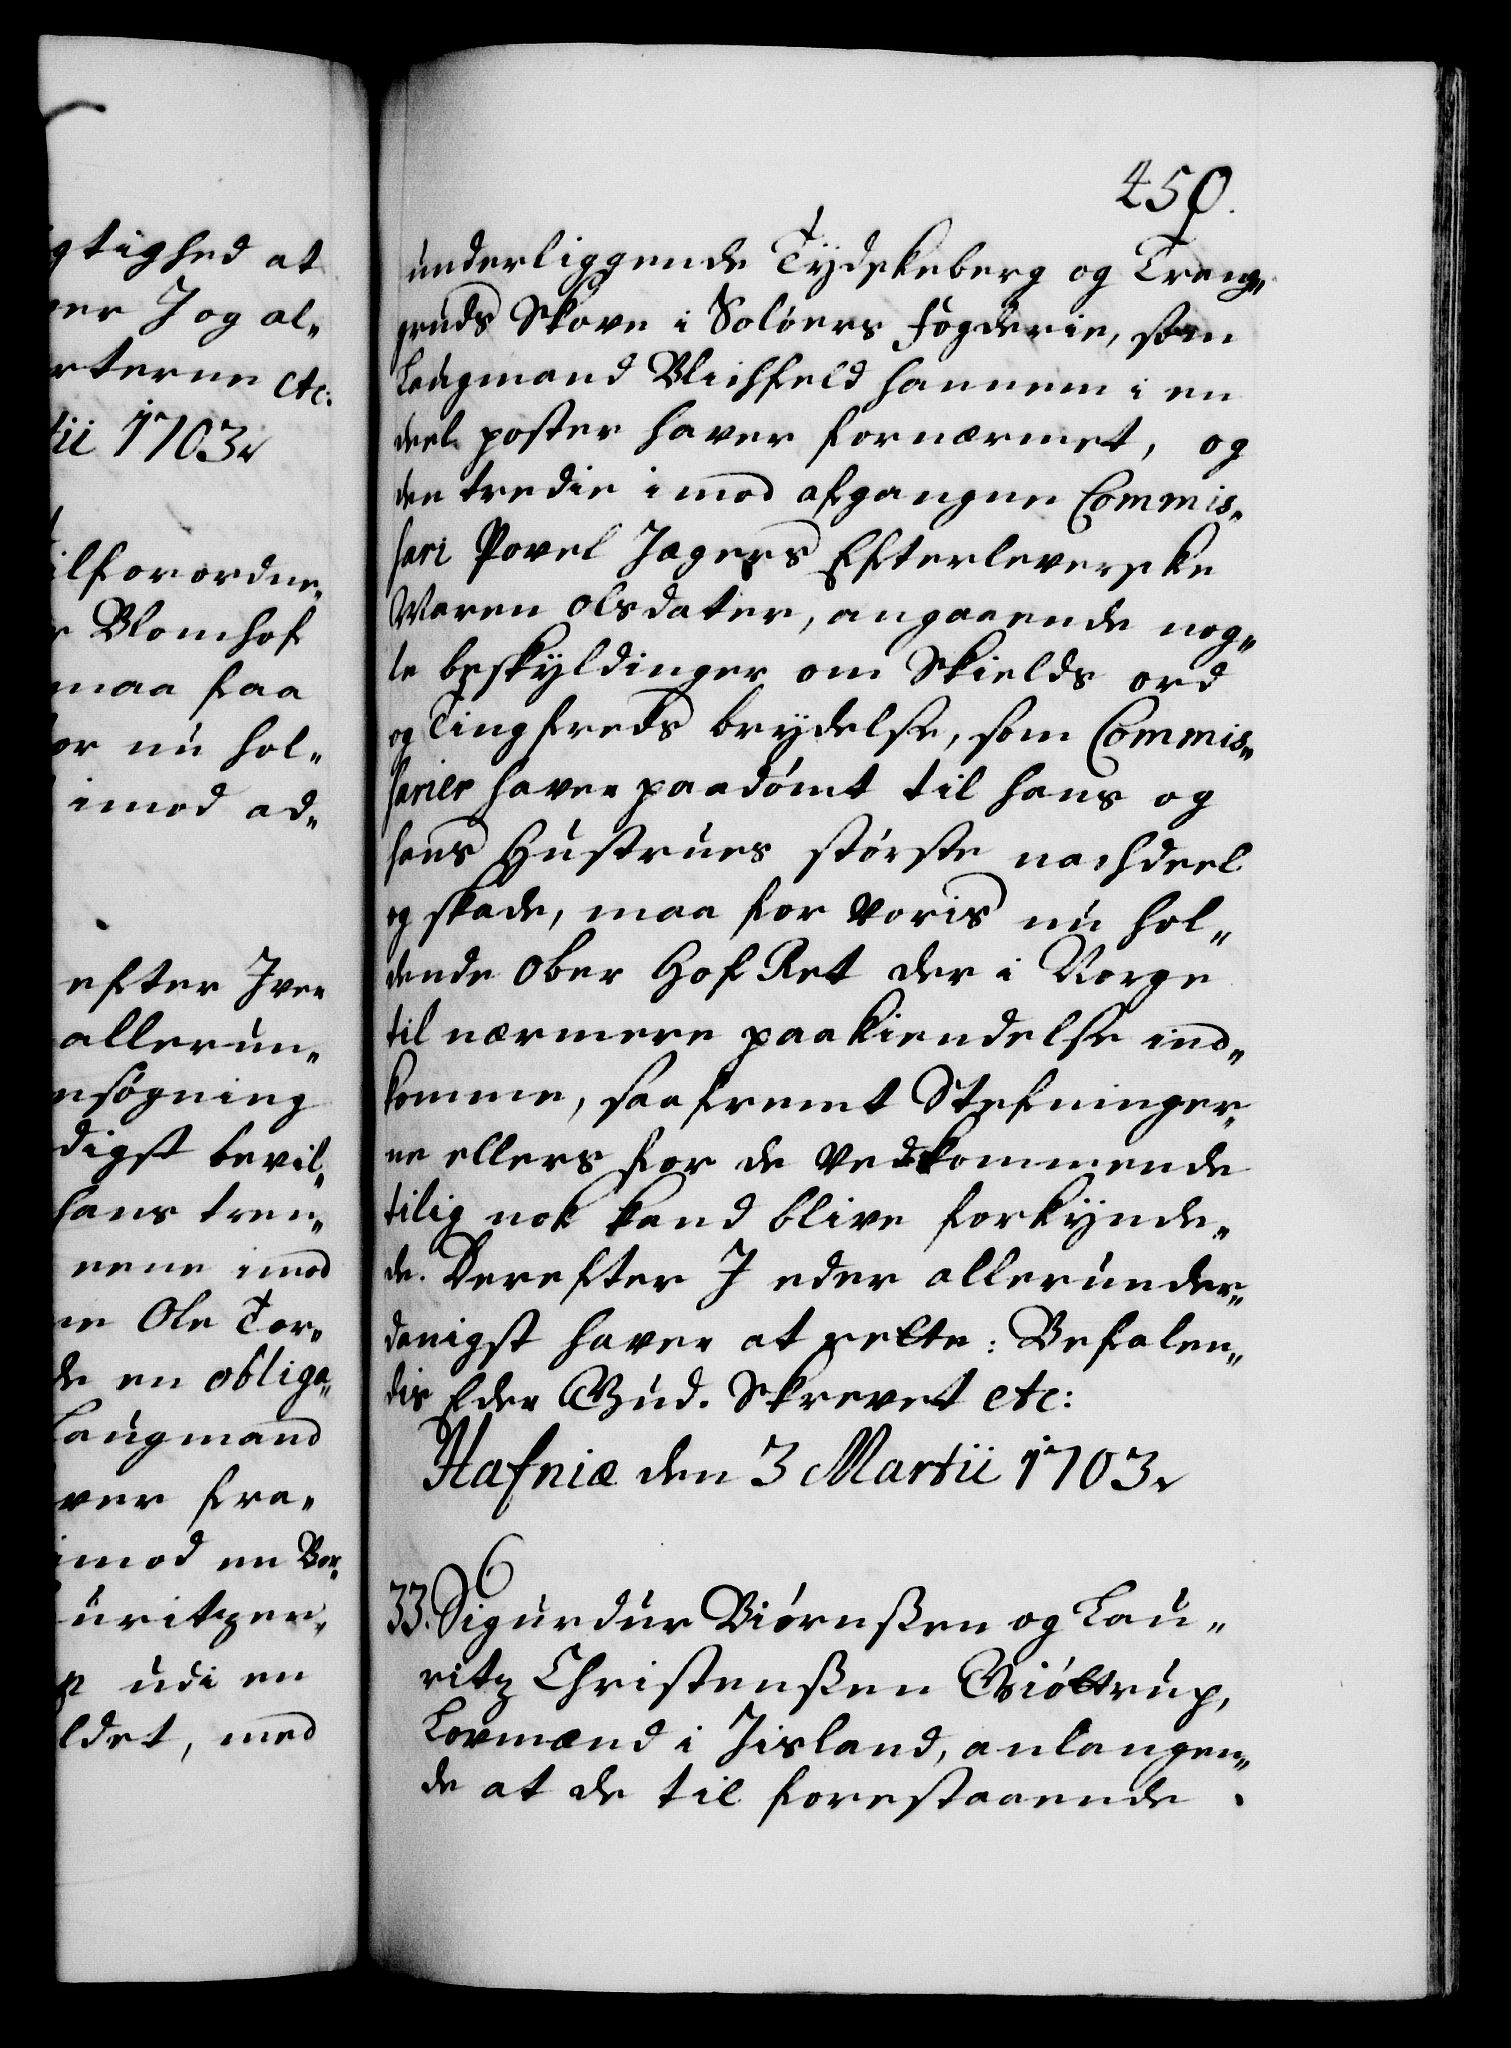 gtighed at
er J og al„
rterne etc:
tii 1703
ilforordne„
r Blomhof
maa faa
or nu hol„
imod ad„
efter Iver
allerun„
nsøgning
digst bevil„
hans tren„
nene imod
ne Ole Tor„
de en obliga„
Laugmand
ver fra„
imod en Bor„
uritzen„
udi en
ldet, med
450.
underliggende Tydskeberg og Trang„
gruds Skove i Soløers fogderie, som
Laugmand Blichfeld hannem i en
deel poster haver fornærmet, og
den tredie imod afgangne Commis„
sari Povel Jagers Efterleverske
Maren olsdater, angaaende nog„
le beskyldinger om Skields ord
og Tingfreds brydelse, som Commis„
sarier haver paadømt til hans og
hans Hustrues største nachdeel
og skade, maa for voris nu hol„
dende Ober Hof Ret der i Norge
til nærmere paakiendelse ind„
komme, saafremt Stefninger„
ne ellers for de vedkommende
tilig nok kand blive forkynde„
de. Derefter J eder allerunder„
danigst haver at rette: Befalen„
dis Eder Gud. Skrevet etc:
Hafniæ den 3 Martii 1703
6
33. Sigurdur Biørnßen og Lau„
ritz Christenßen Giøttrup,
Lovmænd i Jisland, anlangen„
de at de til forestaaende